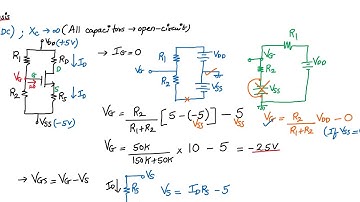 sis
DC) ; Xc → ∞ (All capacitors → open-circuit)
VDD (+5V)
R1
ID
D
VG
G
S
R2
RS
ID
VSS (-5V)
→ IG = 0
R1
VDD
VG
R2
VSS
R1
VG
VDD
R2
VSS
VG = R2/(R1+R2) [5-(-5)] - 5
VSS
VSS
VG = R2/(R1+R2) VDD - 0
(If VSS=
VG = 50K/(150K+50K) × 10 - 5 = -2.5V
→ VGS = VG - VS
ID
VS
RS
VS = IDRS - 5